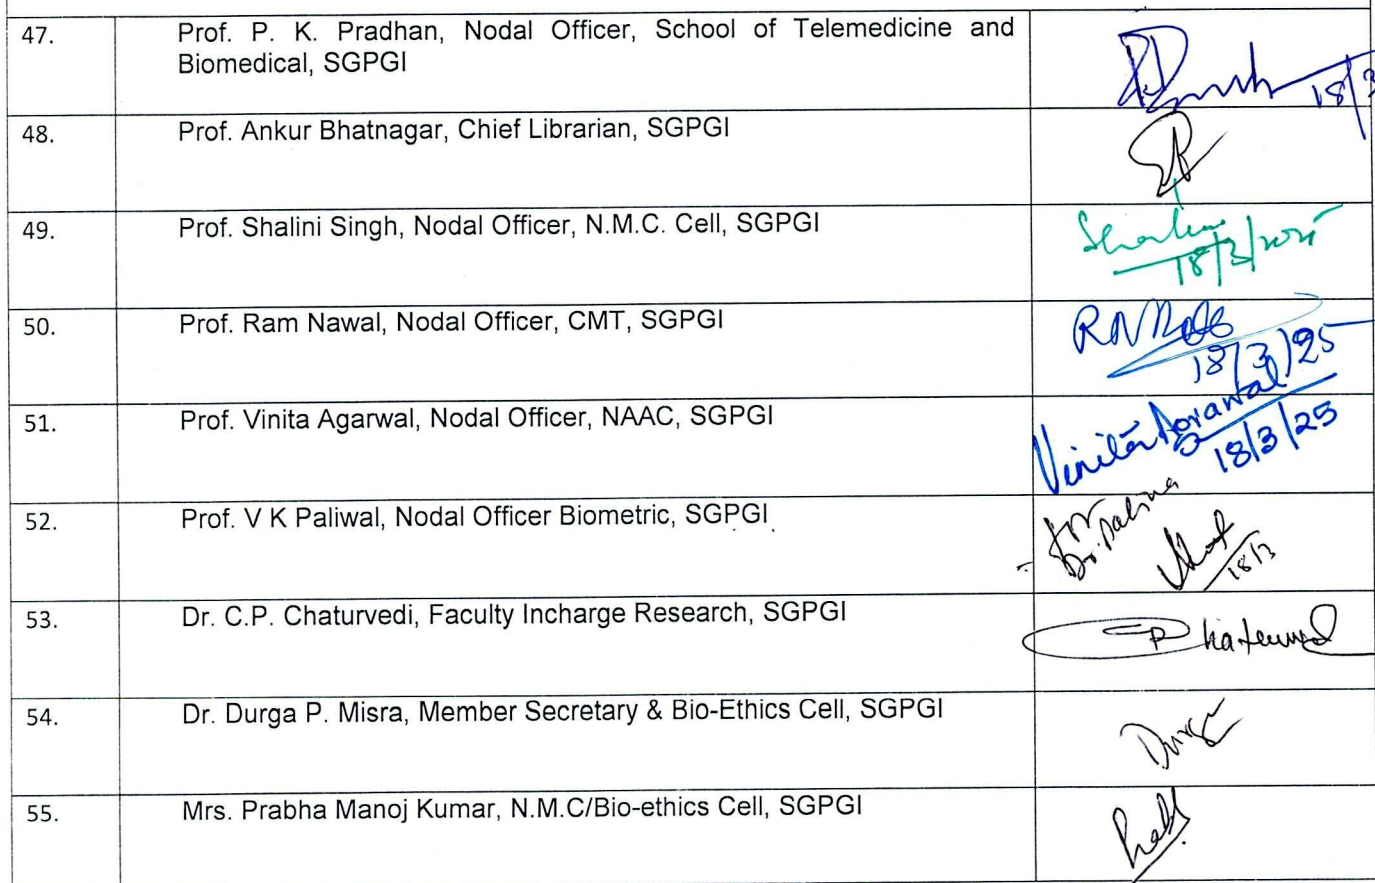 47.
Prof. P. K. Pradhan, Nodal Officer, School of Telemedicine and
Biomedical, SGPGI
18/3
48.
Prof. Ankur Bhatnagar, Chief Librarian, SGPGI
49.
Prof. Shalini Singh, Nodal Officer, N.M.C. Cell, SGPGI
Shalini
18/3/2025
50.
Prof. Ram Nawal, Nodal Officer, CMT, SGPGI
18/3/25
51.
Prof. Vinita Agarwal, Nodal Officer, NAAC, SGPGI
Vinita Agrawal
18/3/25
52.
Prof. V K Paliwal, Nodal Officer Biometric, SGPGI
for
18/3
53.
Dr. C.P. Chaturvedi, Faculty Incharge Research, SGPGI
CP Chaturvedi
54.
Dr. Durga P. Misra, Member Secretary & Bio-Ethics Cell, SGPGI
Durga
55.
Mrs. Prabha Manoj Kumar, N.M.C/Bio-ethics Cell, SGPGI